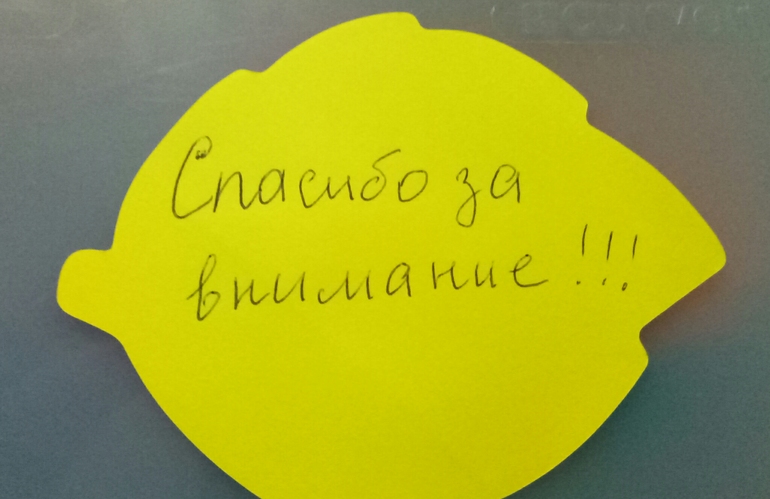 Спасибо за
внимание!!!